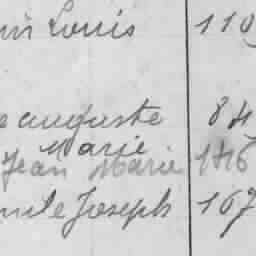 Louis 110
auguste 84
Marie
Jean Marie 146
Joseph 167